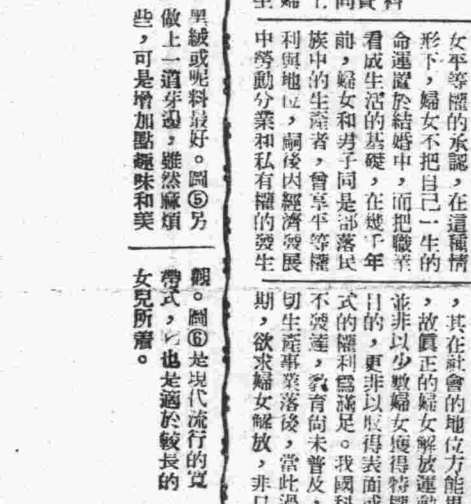 女平等權的承認，在這種情
形下，婦女不把自己一生的
命運置於結婚中，而把職業
看成生活的基礎，在幾千年
前，婦女和男子同是部落民
族中的生產者，曾享平等權
利與地位，嗣後因經濟發展
中勞動分業和私有權的發生
，其在社會的地位方能
，故眞正的婦女解放運動
並非以少數婦女獲得特權
目的，更非以取得表面
式的權利爲滿足。我國科
不發達，教育尚未普及，
切生產事業落後，當此過
期，欲求婦女解放，非
黑絨或呢料最好。圖⑤另
做上一道芽邊，雖然麻煩
些，可是增加點趣味和美
觀。圖⑥是現代流行的寬
帶式，它也是適於較長的
女兒所著。